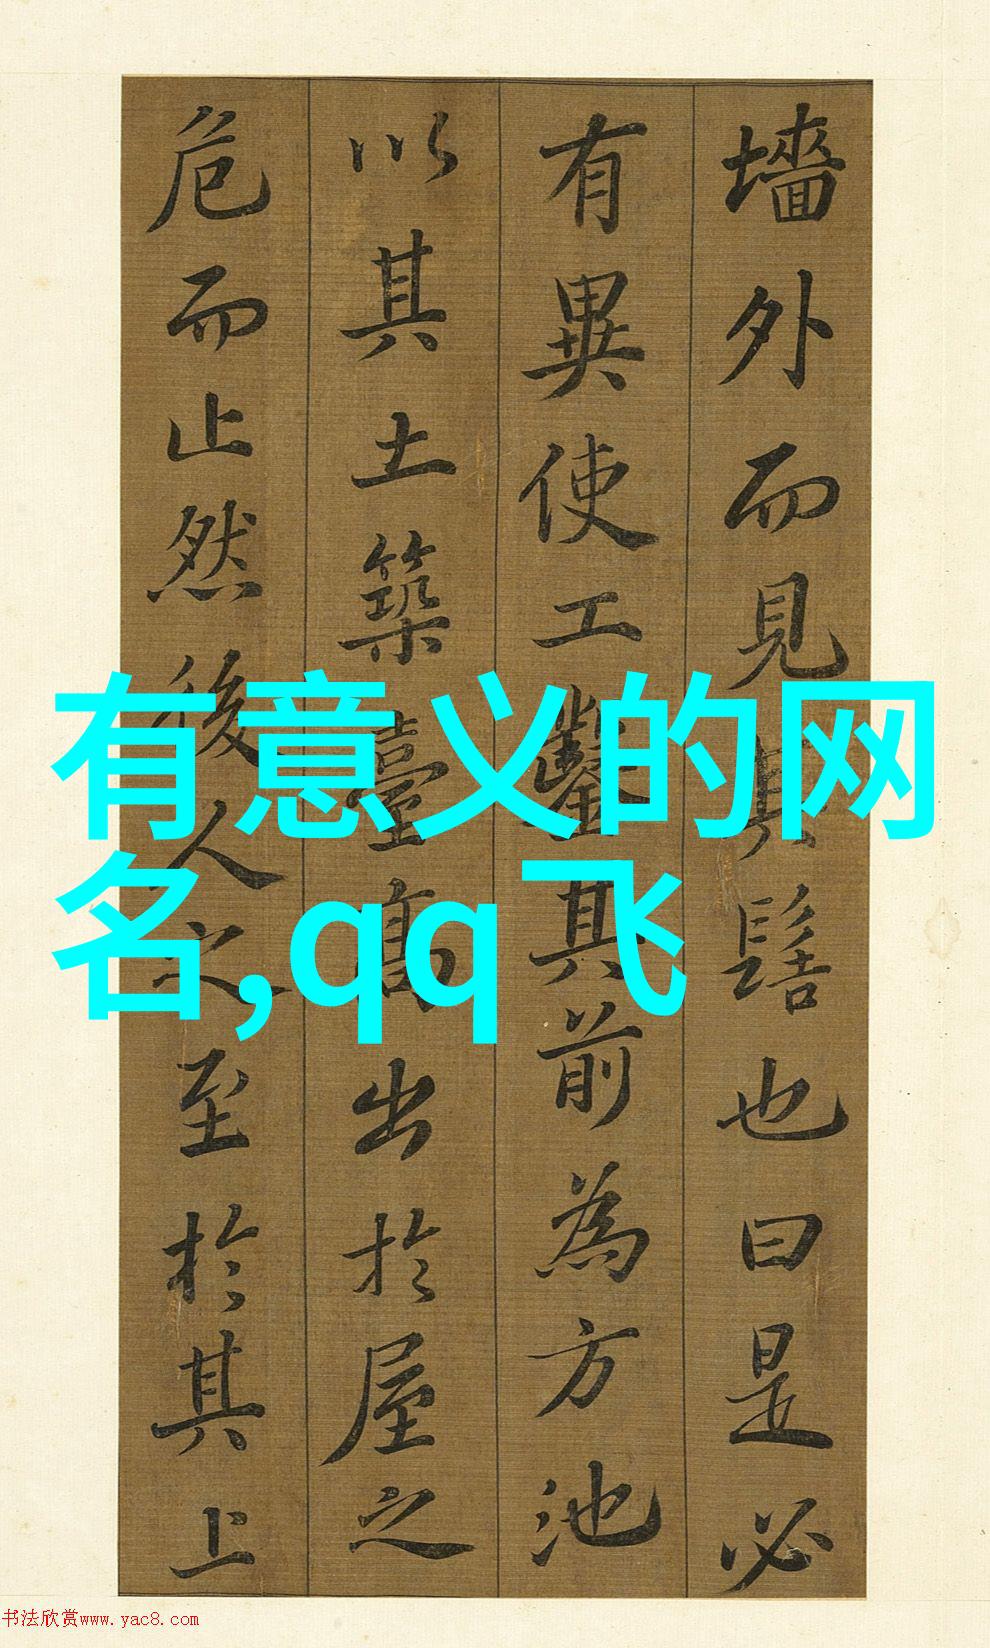 墻外而見其髻也曰是必
有異使工鑿其前為方池
以其土築臺高出於屋之
危而止然後人之至於其上
有意义的网
名,qq飞
书法欣赏www.yac8.com